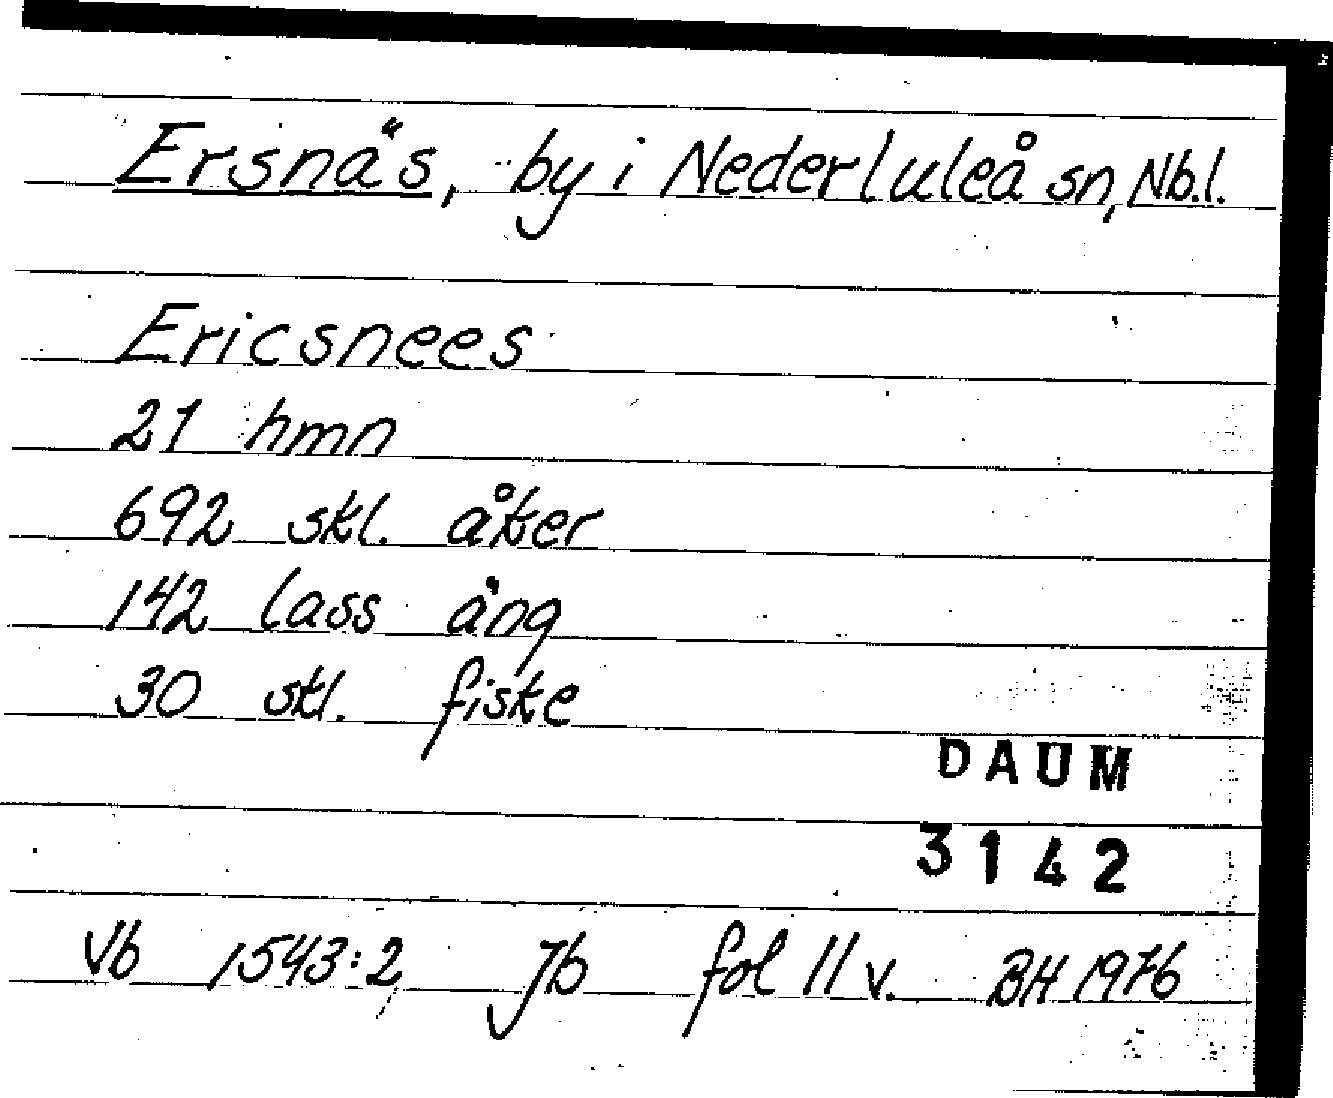 Ersnäs, by i Nederluleå sn, Nb.l.
Ericsnees
21 hmn
692 skl. åker
142 lass äng
30 skl. fiske
DAUM
3142
Vb 1543:2, Jb fol 11 v. BH 1976